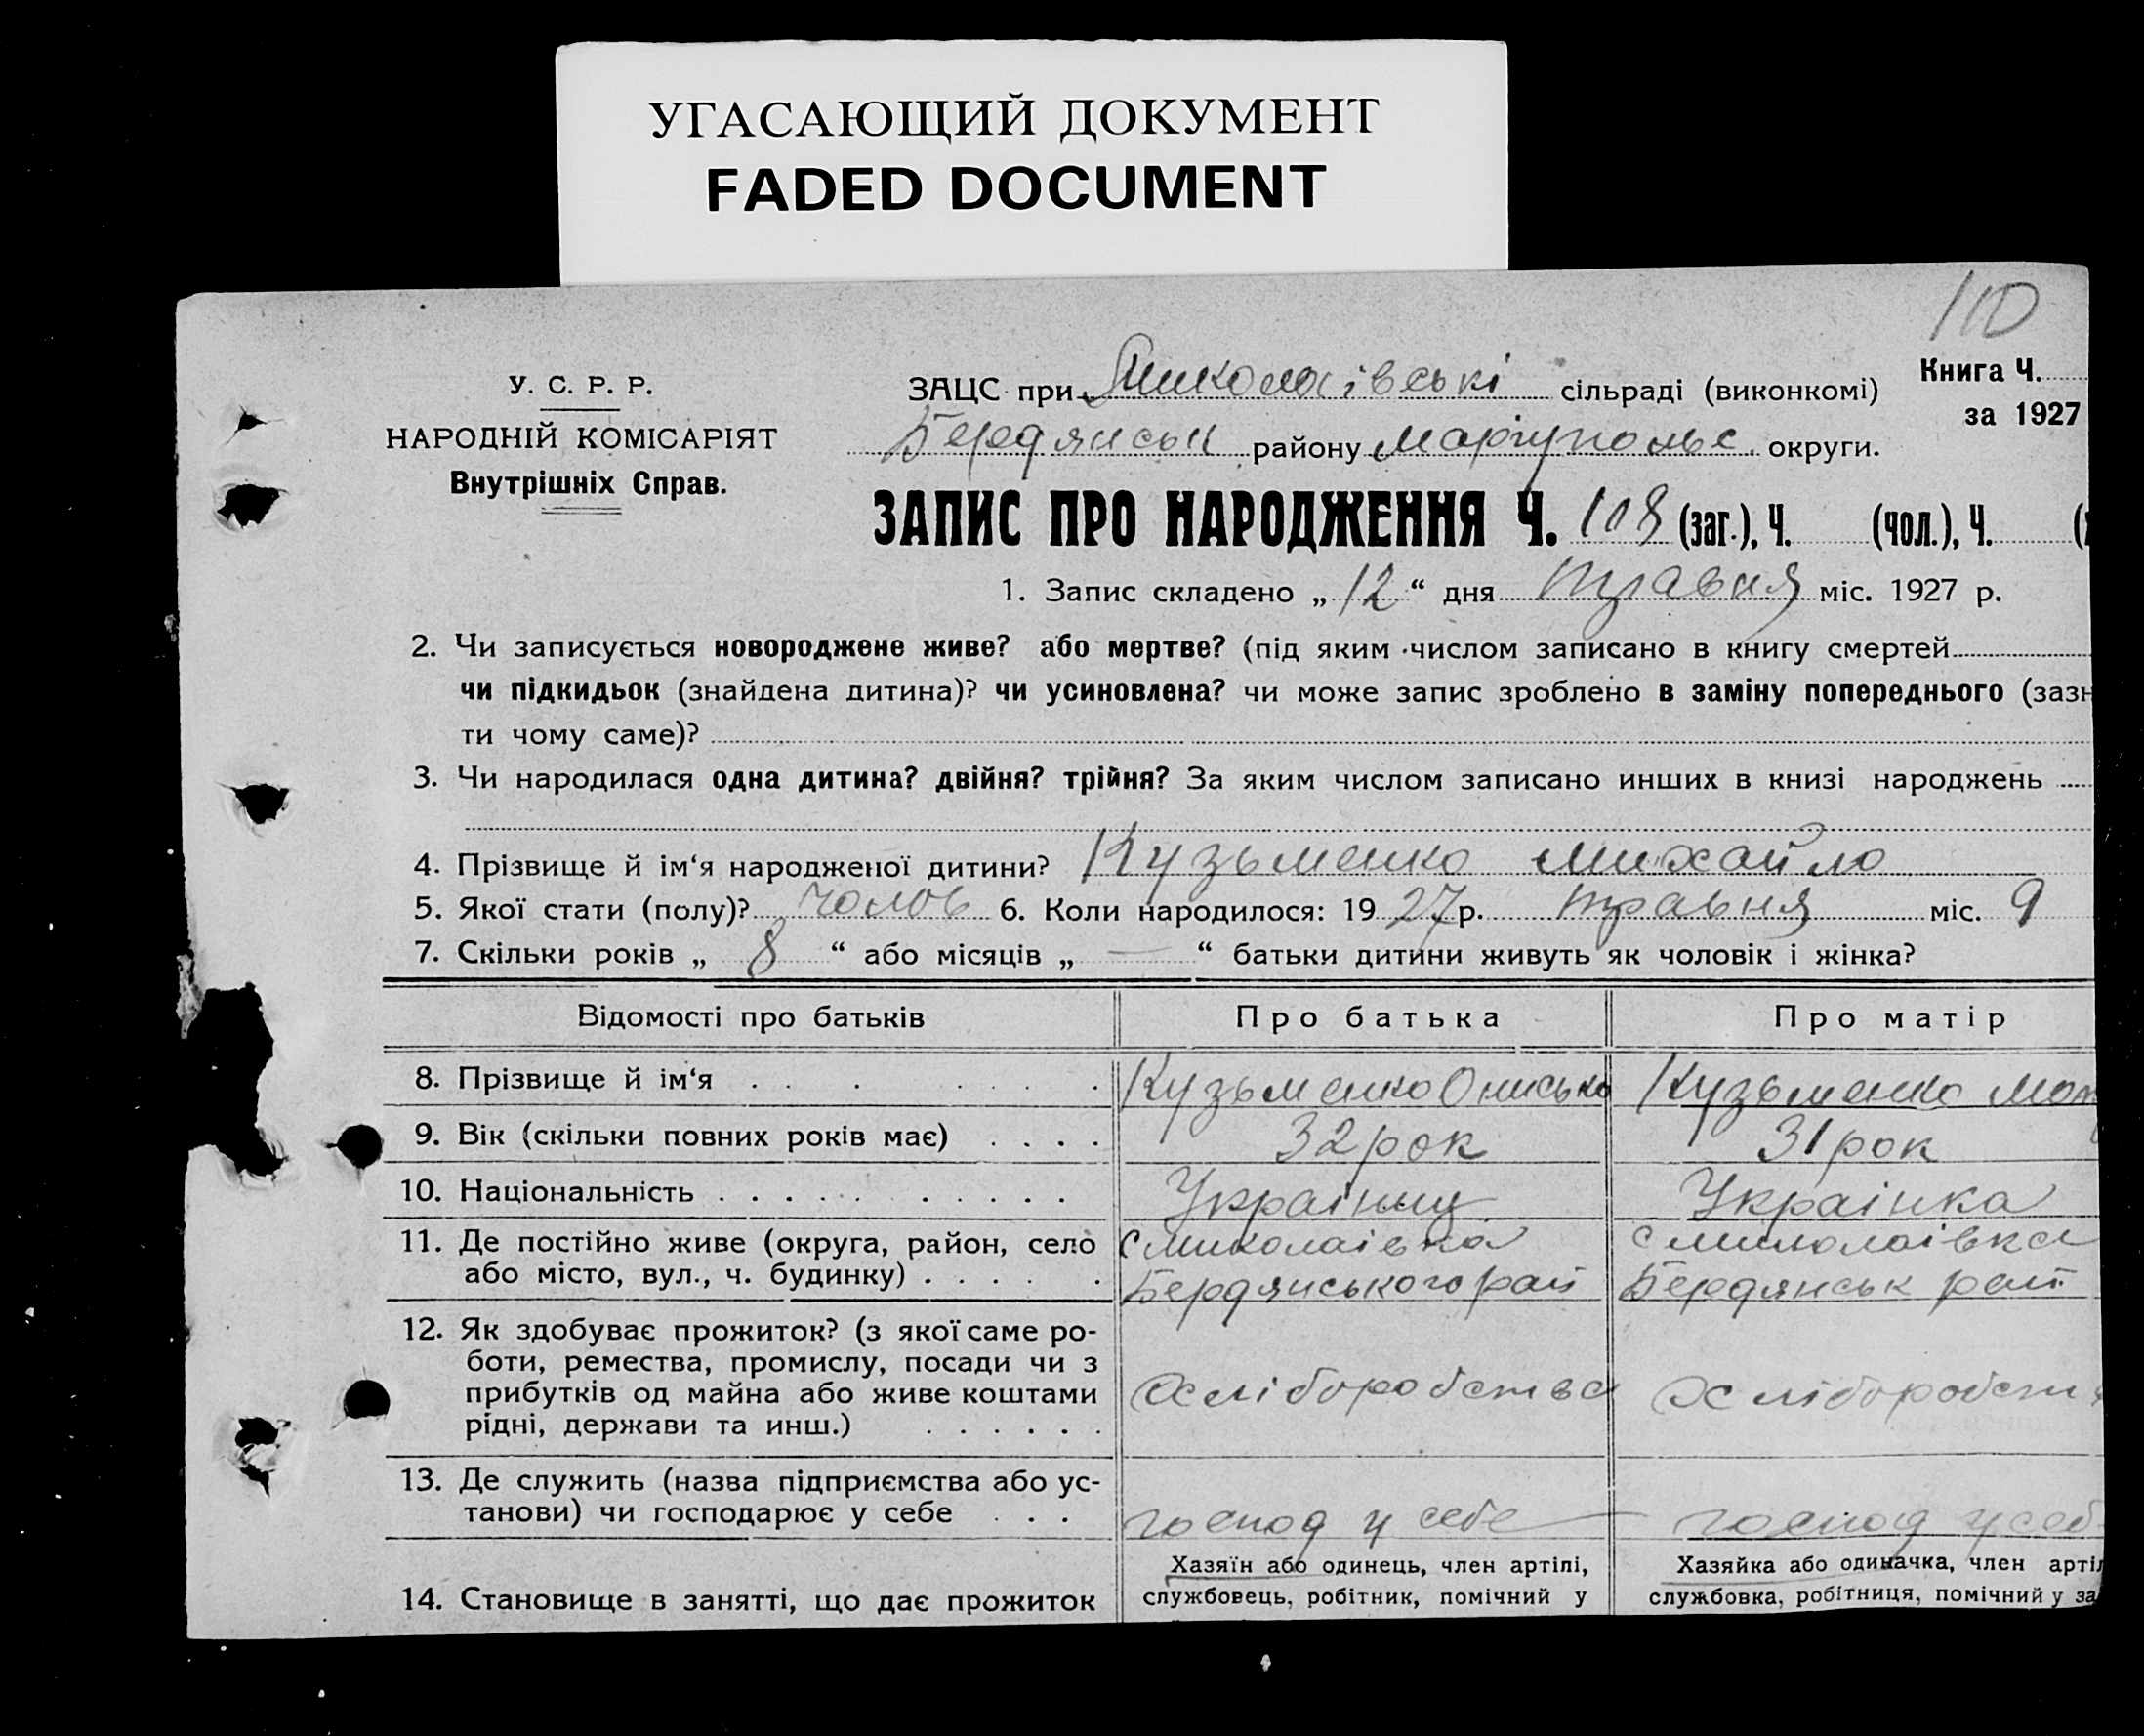 УГАСАЮЩИЙ ДОКУМЕНТ
FADED DOCUMENT
110
У. С. Р. Р.
НАРОДНІЙ КОМІСАРІЯТ
Внутрішніх Справ.
ЗАЦС при Миколаівські сільраді (виконкомі)
Книга Ч.
за 1927
Бердянськ району Маріупольс. округи.
ЗАПИС ПРО НАРОДЖЕННЯ Ч. 108 (заг.), Ч. (чол.), Ч.
1. Запис складено „ 12 “ дня травня міс. 1927 р.
2. Чи записується новороджене живе? або мертве? (під яким числом записано в книгу смертей
чи підкидьок (знайдена дитина)? чи усиновлена? чи може запис зроблено в заміну попереднього (зазн
ти чому саме)?
3. Чи народилася одна дитина? двійня? трійня? За яким числом записано инших в книзі народжень
4. Прізвище й ім‘я народженої дитини? Кузьменко Михайло
5. Якої стати (полу)? чолов 6. Коли народилося: 19 27 р. травня міс. 9
7. Скільки років „ 8 “ або місяців „ — “ батьки дитини живуть як чоловік і жінка?
Відомості про батьків Про батька Про матір
8. Прізвище й ім‘я Кузьменко Онисько Кузьменко
9. Вік (скільки повних років має) 32 рок 31 рок
10. Національність Украінец Украінка
11. Де постійно живе (округа, район, село с Миколаівка с Миколаівка
або місто, вул., ч. будинку) Бердянського рай Бердянськ рай
12. Як здобуває прожиток? (з якої саме ро-
боти, ремества, промислу, посади чи з
прибутків од майна або живе коштами Хліборобства Хліборобств
рідні, держави та инш.)
13. Де служить (назва підприємства або ус-
танови) чи господарює у себе господ у себе — господ у себ
14. Становище в занятті, що дає прожиток
Хазяїн або одинець, член артілі,
службовець, робітник, помічний у
Хазяйка або одиначка, член артіл
службовка, робітниця, помічний у за